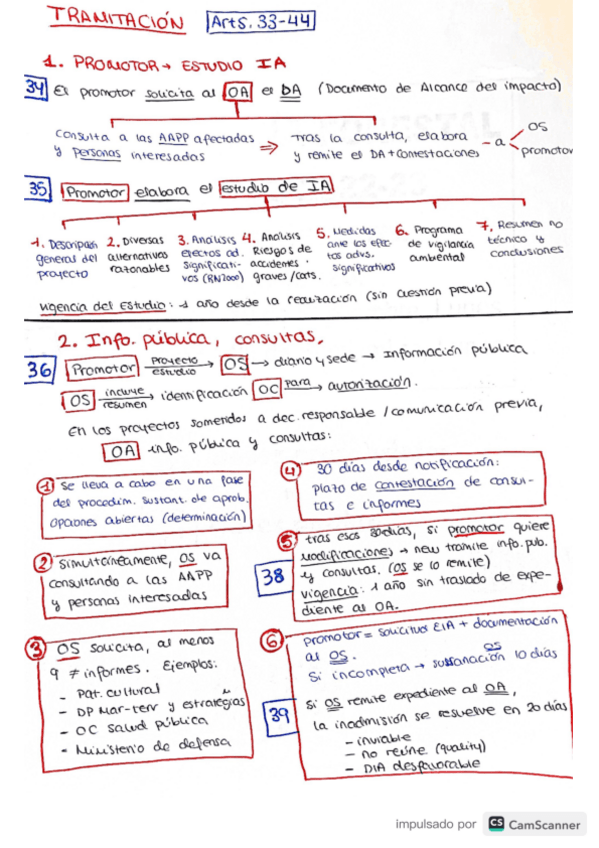 TRAMITACIÓN Arts. 33-44
1. PROMOTOR → ESTUDIO IA
34 El promotor solicita al OA el DA (Documento de Alcance del impacto)
Consulta a las AAPP afectadas
y personas interesadas
⇒ tras la consulta, elabora
y remite el DA + contestaciones - a
OS
promotor
35 Promotor elabora el estudio de IA
1. Descripción
general del
proyecto
2. Diversas
alternativas
razonables
3. Análisis
efectos ad.
significati-
vos (RN2000)
4. Análisis
Riesgos de
accidentes.
graves/cats.
5. Medidas
ante los efec-
tos advs.
significativos
6. Programa
de vigilancia
ambental
7. Resumen no
técnico y
conclusiones
vigencia del Estudio: 1 año desde la realización (sin cuestión previa)
2. Info. pública, consultas.
36 Promotor proyecto estudio → OS → diario y sede → Información pública
OS incluye resumen → identificación OC para → autorización.
En los proyectos someridos a dec. responsable / comunicación previa,
OA info. pública y consultas:
1 se lleva a cabo en una fase
del procedim. sustant. de aprob.
opciones abiertas (determinación)
2 simultáneamente, OS va
consultando a las AAPP
y personas interesadas
3 OS solicita, al menos
9 ≠ informes. Ejemplos:
- Pat. cultural
- DP Mar-terr y estrategias
- OC salud pública
- Ministerio de defensa
4 30 días desde notificación:
plazo de contestación de consul-
tas e informes
5 tras esos 30 días, si promotor quiere
modificaciones → new trámite info. pub.
y consultas. (OS se lo remite)
38 vigencia: 1 año sin traslado de expe-
diente as OA.
6 promotor = solicitud EIA + documentación
al OS.
Si incompleta → OS subsanación 10 días
39 Si OS remite expediente al OA,
la inadmisión se resuelve en 20 días
- inviable
- no reúne (quality)
- DIA desfavorable
impulsado por CS CamScanner